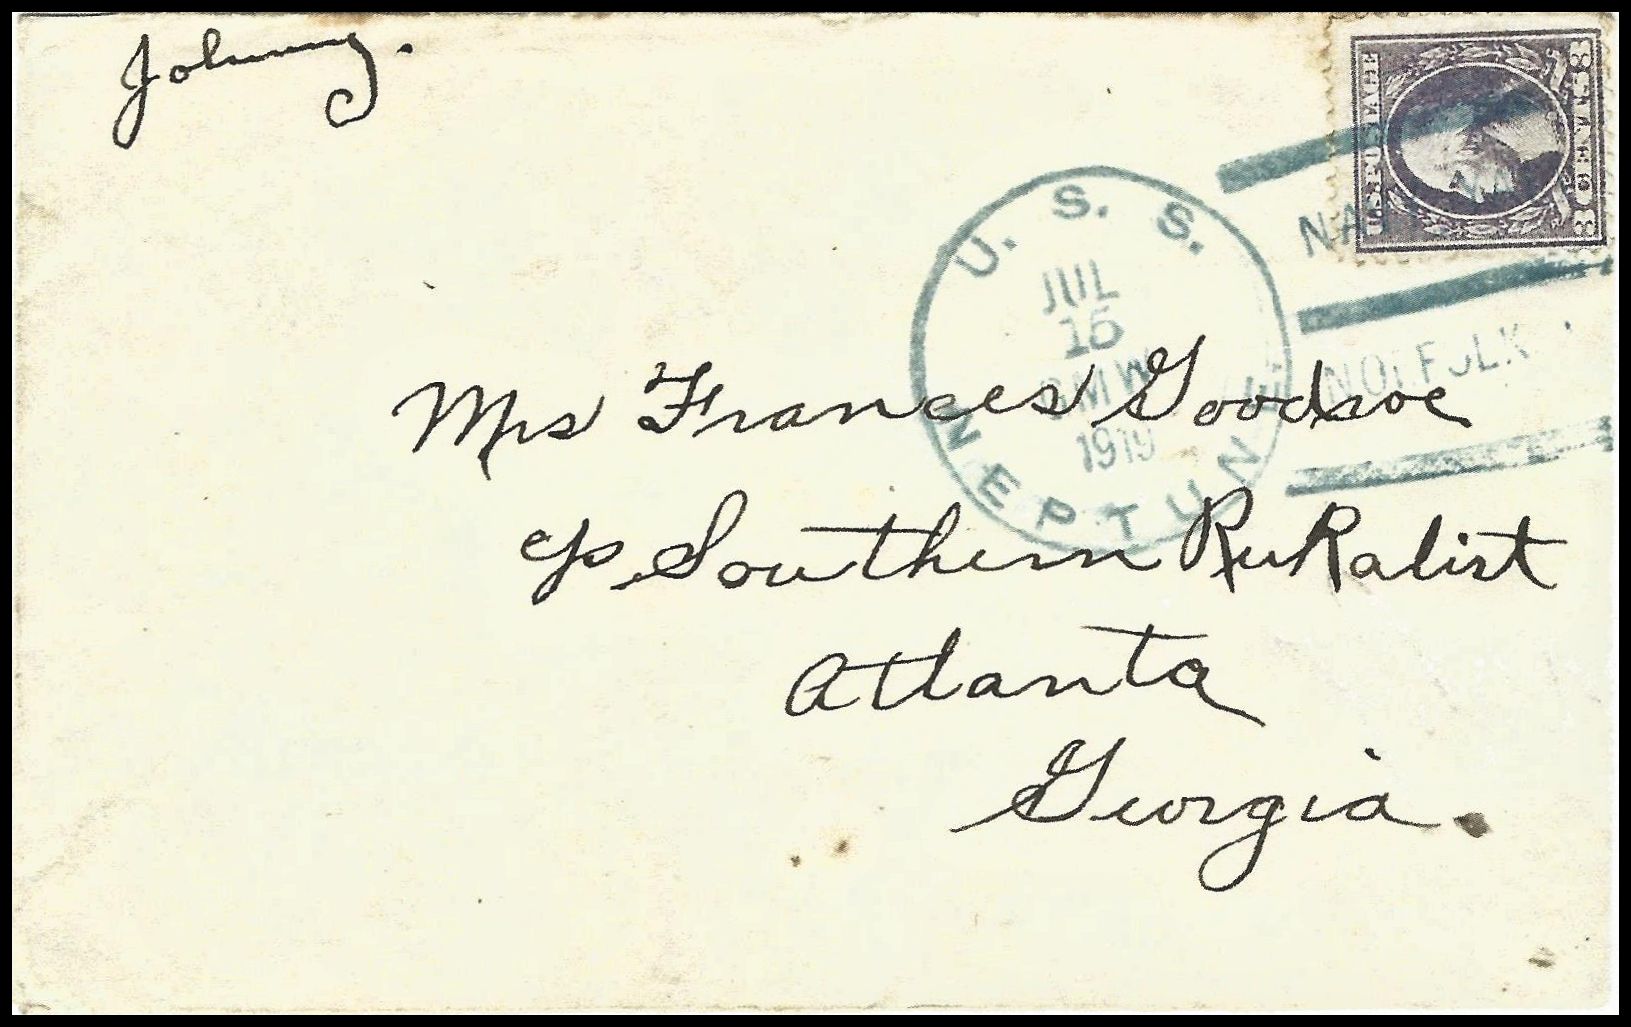 Johnny.
U. S. S. NEPTUNE
JUL
15
1919
NORFOLK
U.S. POSTAGE
3 CENTS 3
Mrs Frances Goodsoe
c/o Southern RuRalist
Atlanta
Georgia.